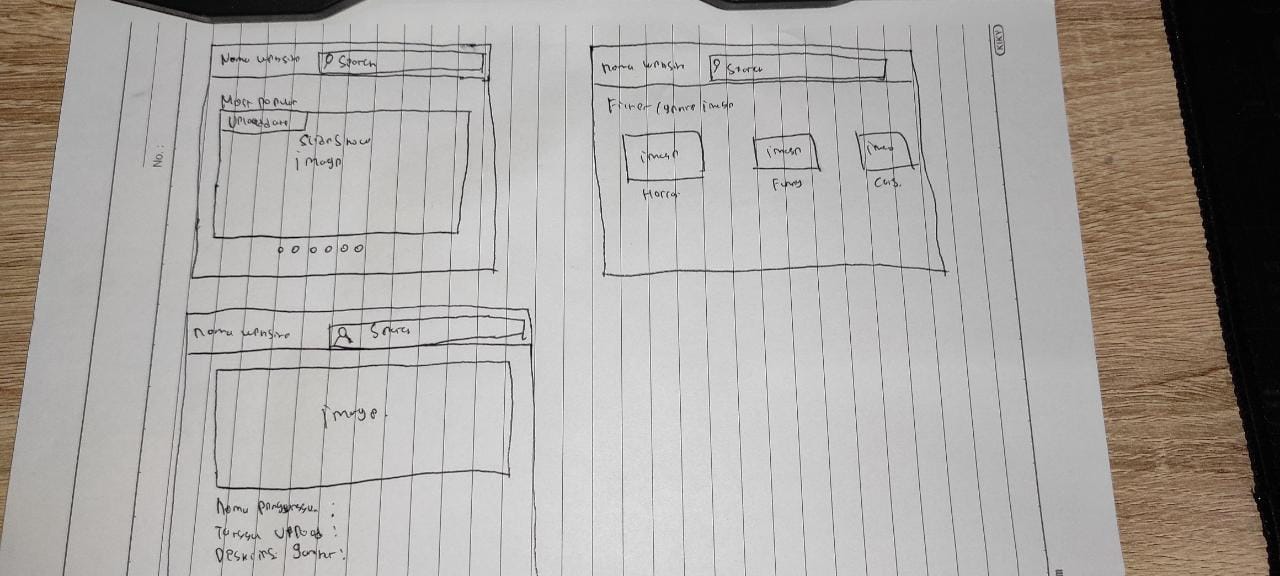 Nama website Search
Most popular
Upload date
Slideshow
image
Nama website Search
Filter / genre image
image image image
Horror Funny
Nama website Search
image
Nama pengupload :
Tanggal upload :
Deskripsi gambar :
No.:
KIKY